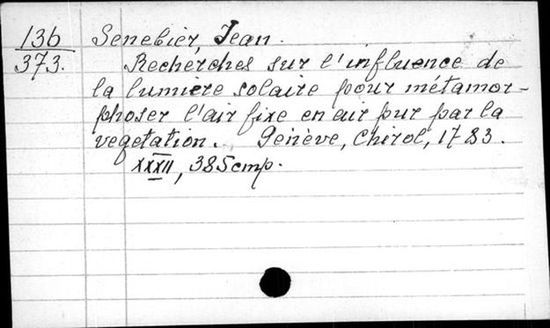 136 Senebier, Jean.
373. Recherches sur l'influence de
la lumiere solaire pour métamor-
phoser l'air fixe en air pur par la
vegetation. Genève, Chirol, 1783.
XXXII, 385 стр.